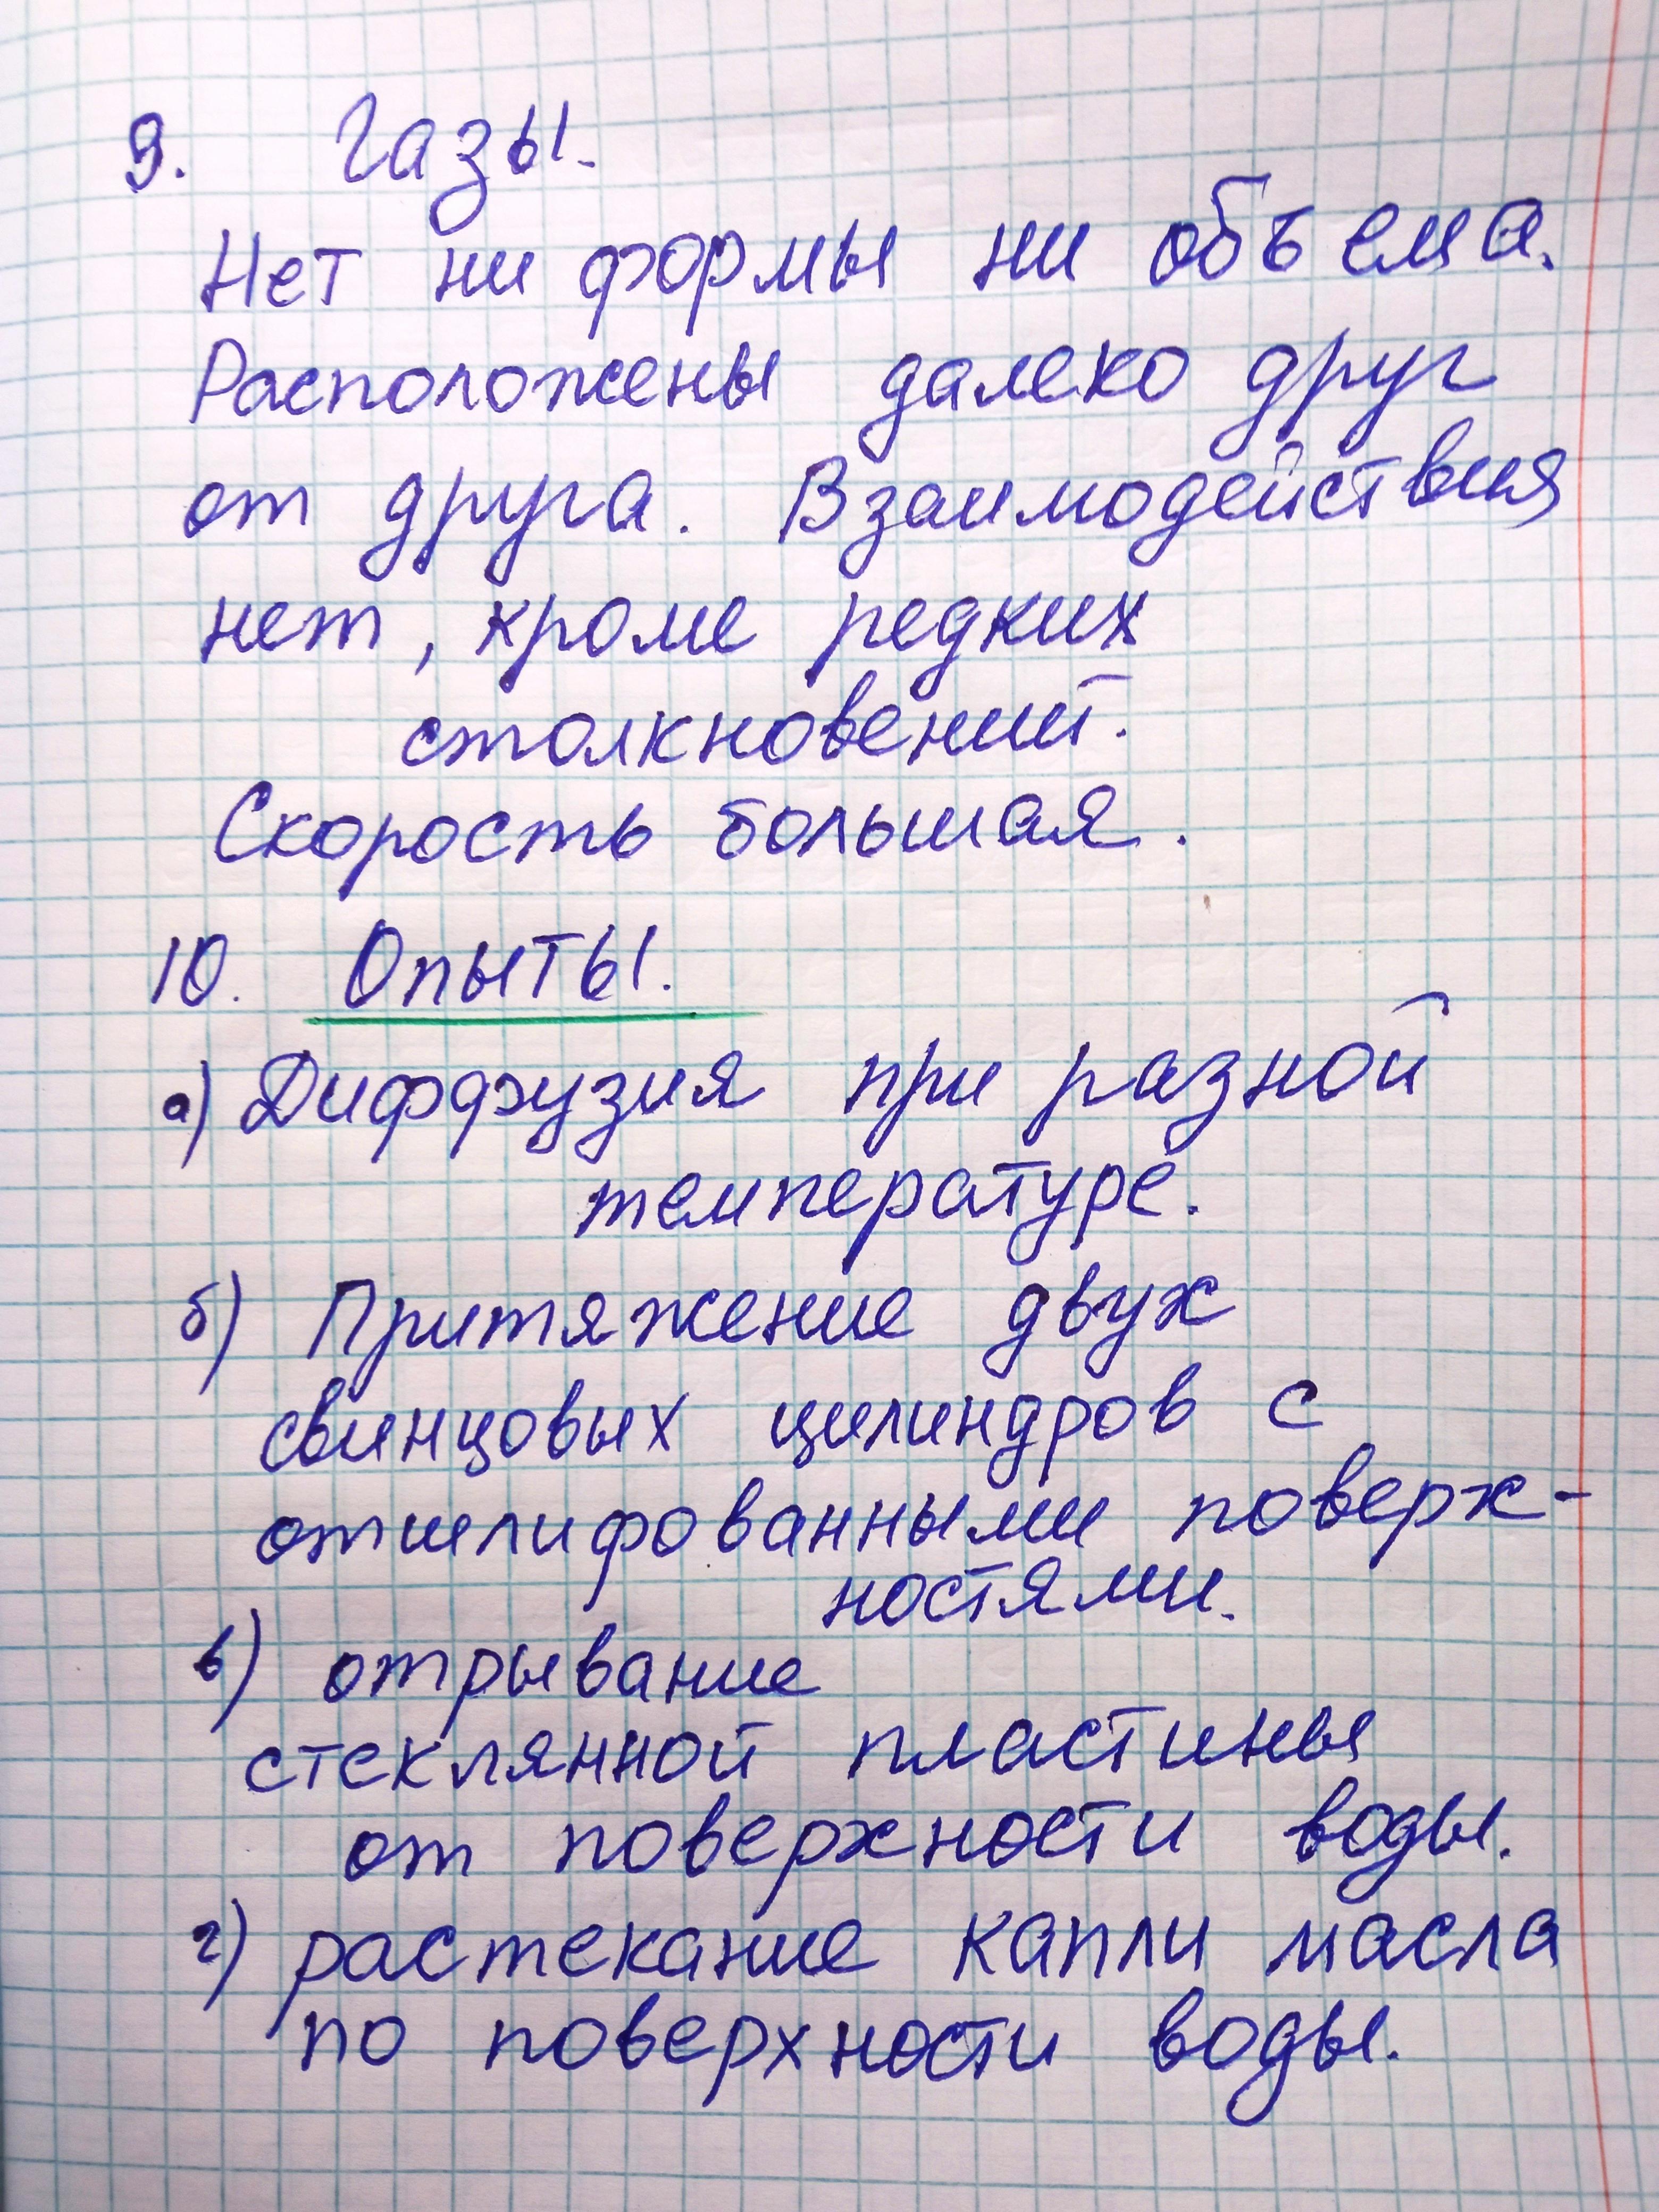 9. Газы.
Нет ни формы ни объема.
Расположены далеко друг
от друга. Взаимодействия
нет, кроме редких
столкновений.
Скорость большая.
10. Опыты.
а) Диффузия при разной
температуре.
б) Притяжение двух
свинцовых цилиндров с
отшлифованными поверх-
ностями.
в) отрывание
стеклянной пластины
от поверхности воды.
г) растекание капли масла
по поверхности воды.